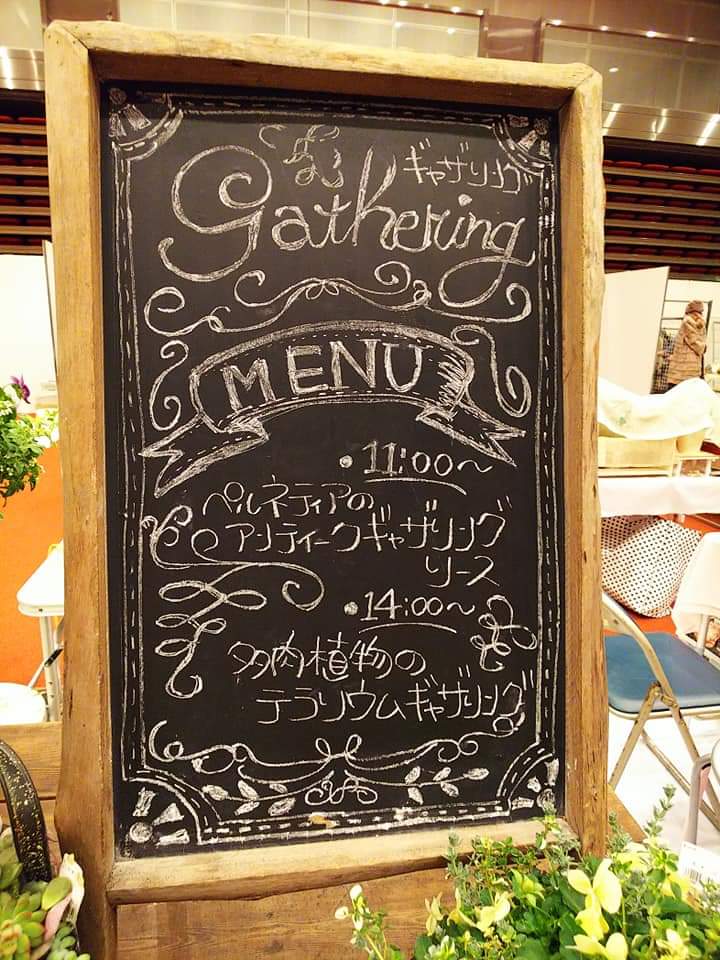 ギャザリング
Gathering
MENU
・11:00〜
ペルネティアの
アンティークギャザリング
リース
・14:00〜
多肉植物の
テラリウムギャザリング